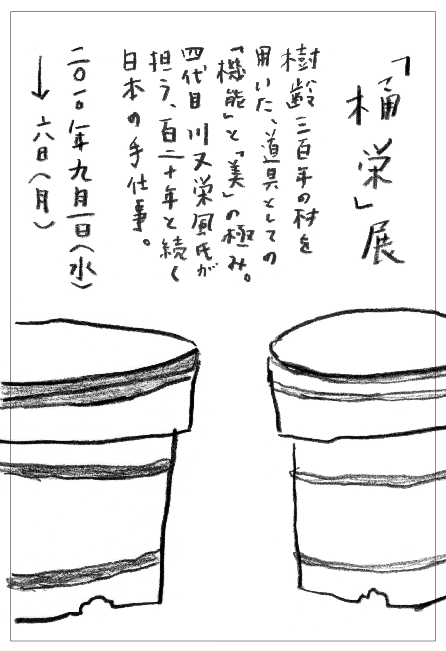 「桶栄」展
樹齢三百年の材を
用いた、道具としての
「機能」と「美」の極み。
四代目川又栄風氏が
担う、百二十年と続く
日本の手仕事。
二〇一〇年九月一日(水)
→六日(月)